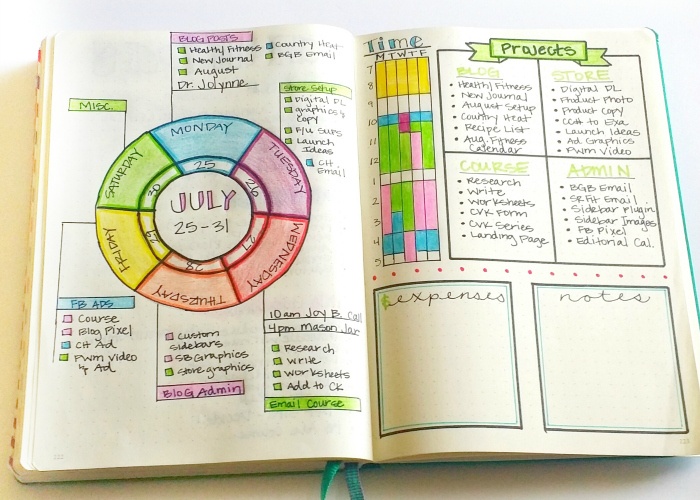 BLOG POSTS
Healthy Fitness
New Journal
August
Dr. Jolynne
Country Heat
BGB Email
Store Setup
Digital DL
graphics &
Copy
F/u sups
Launch
Ideas
CH
Email
MISC.
MONDAY
25
TUESDAY
26
WEDNESDAY
27
THURSDAY
28
FRIDAY
29
SATURDAY
30
JULY
25-31
FB ADS
Course
Blog Pixel
CH Ad
PWM Video
& Ad
Custom
sidebars
SB Graphics
Store graphics
Blog Admin
10am Joy B. Call
4pm Mason Jar
Research
Write
Worksheets
Add to CK
Email Course
Time
M T W T F
7
8
9
10
11
12
1
2
3
4
5
Projects
BLOG
• Healthy Fitness
• New Journal
• August Setup
• Country Heat
• Recipe List
• Aug. Fitness
Calendar
STORE
• Digital DL
• Product Photo
• Product Copy
• CCH to Exa
• Launch Ideas
• Ad Graphics
• PWM Video
COURSE
• Research
• Write
• Worksheets
• CVK Form
• CVK Series
• Landing Page
ADMIN
• BGB Email
• SRFit Email
• Sidebar Plugin
• Sidebar Images
• FB Pixel
• Editorial Cal.
$expenses
notes